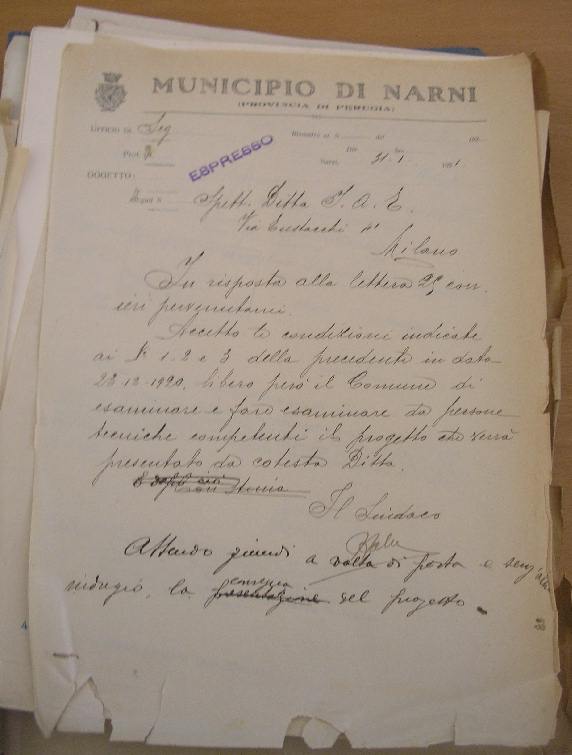 MUNICIPIO DI NARNI
(PROVINCIA DI PERUGIA)
Ufficio di Seg
Risposta al N. del 192
Prot. N.
Div. Sez.
Narni, 31-1 1921
ESPRESSO
OGGETTO:
Spett. Ditta I. A. E.
Via Eustacchi 41
Milano
In risposta alla lettera 29 corr.
ieri pervenutami.
Accetto le condizioni indicate
ai N. 1. 2 e 3 della precedente in data
28-12-1920, libero però il Comune di
esaminare e fare esaminare da persone
tecniche competenti il progetto che verrà
presentato da cotesta Ditta.
Con stima
Il Sindaco
Attendo quindi a volta di posta e senz'altro
indugio, la consegna
presentazione del progetto